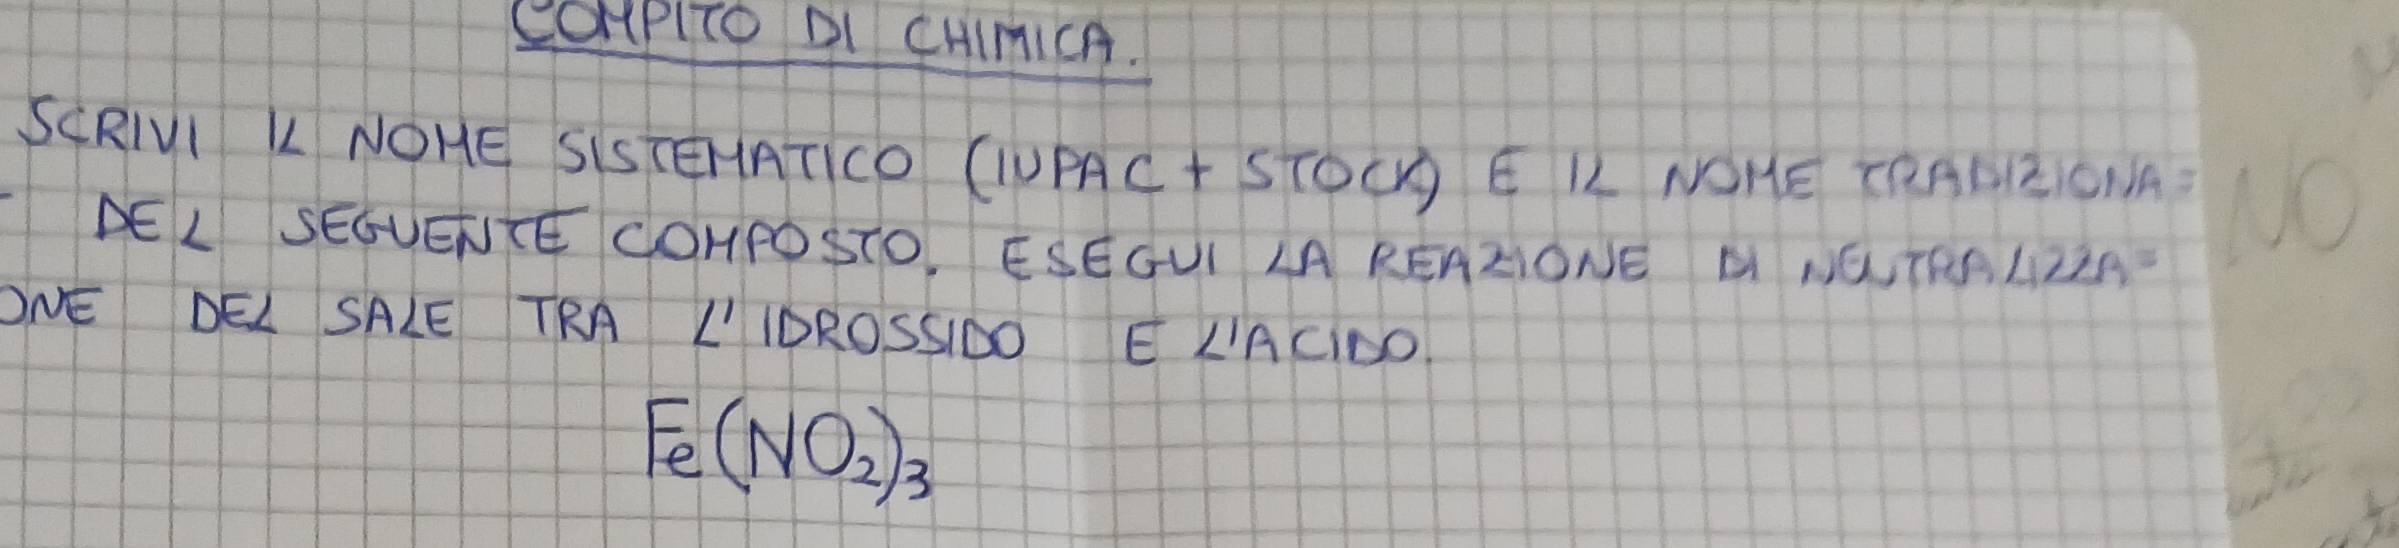 COMPITO DI CHIMICA.
SCRIVI IL NOME SISTEMATICO (IUPAC + STOCK) E IL NOME TRADIZIONA=
DEL SEGUENTE COMPOSTO. ESEGUI LA REAZIONE DI NEUTRALIZZA=
ONE DEL SALE TRA L'IDROSSIDO E L'ACIDO.
Fe(NO₂)₃
NO